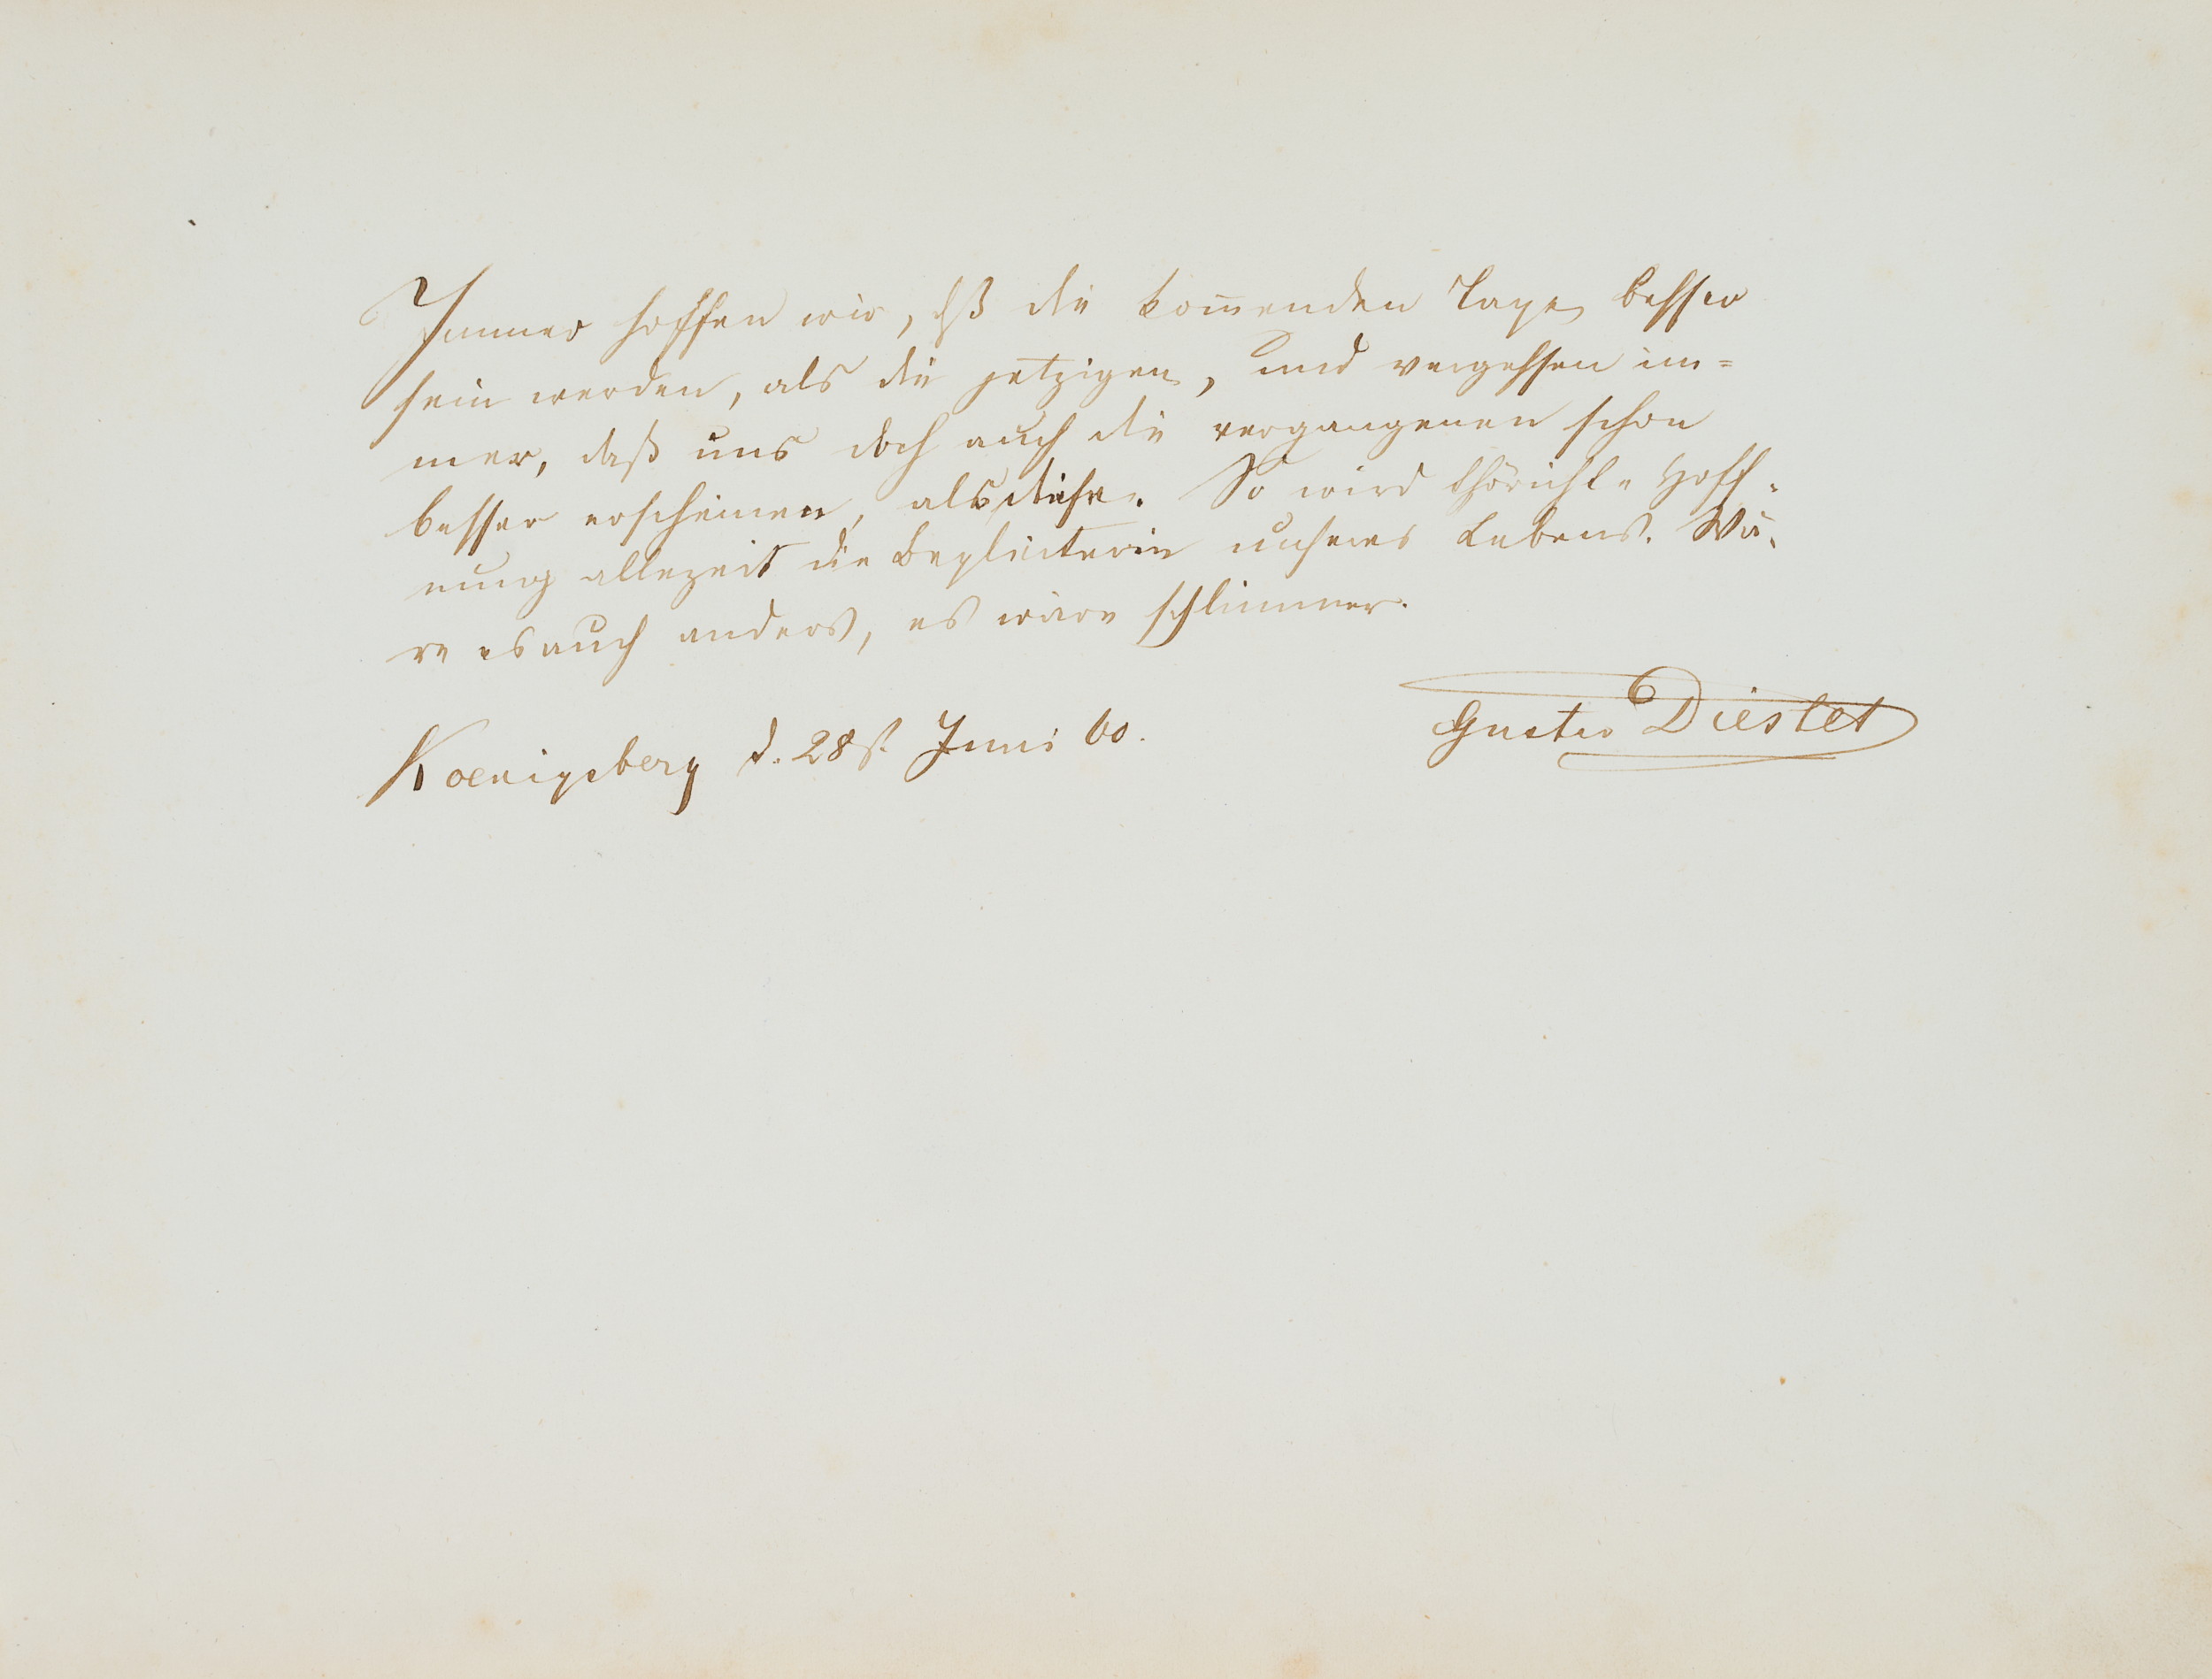 Immer hoffen wir, dß die kom̄enden Tage besser
sein werden, als die jetzigen, und vergessen im=
mer, daß uns doch auch die vergangenen schon
besser erscheinen, als diese. So wird thörichte Hoff-
nung allezeit die Begleiterin unseres Lebens. Wä-
re es auch anders, es wäre schlimmer.
Koenigsberg d. 28st. Juni 60.
Gustav Diestel